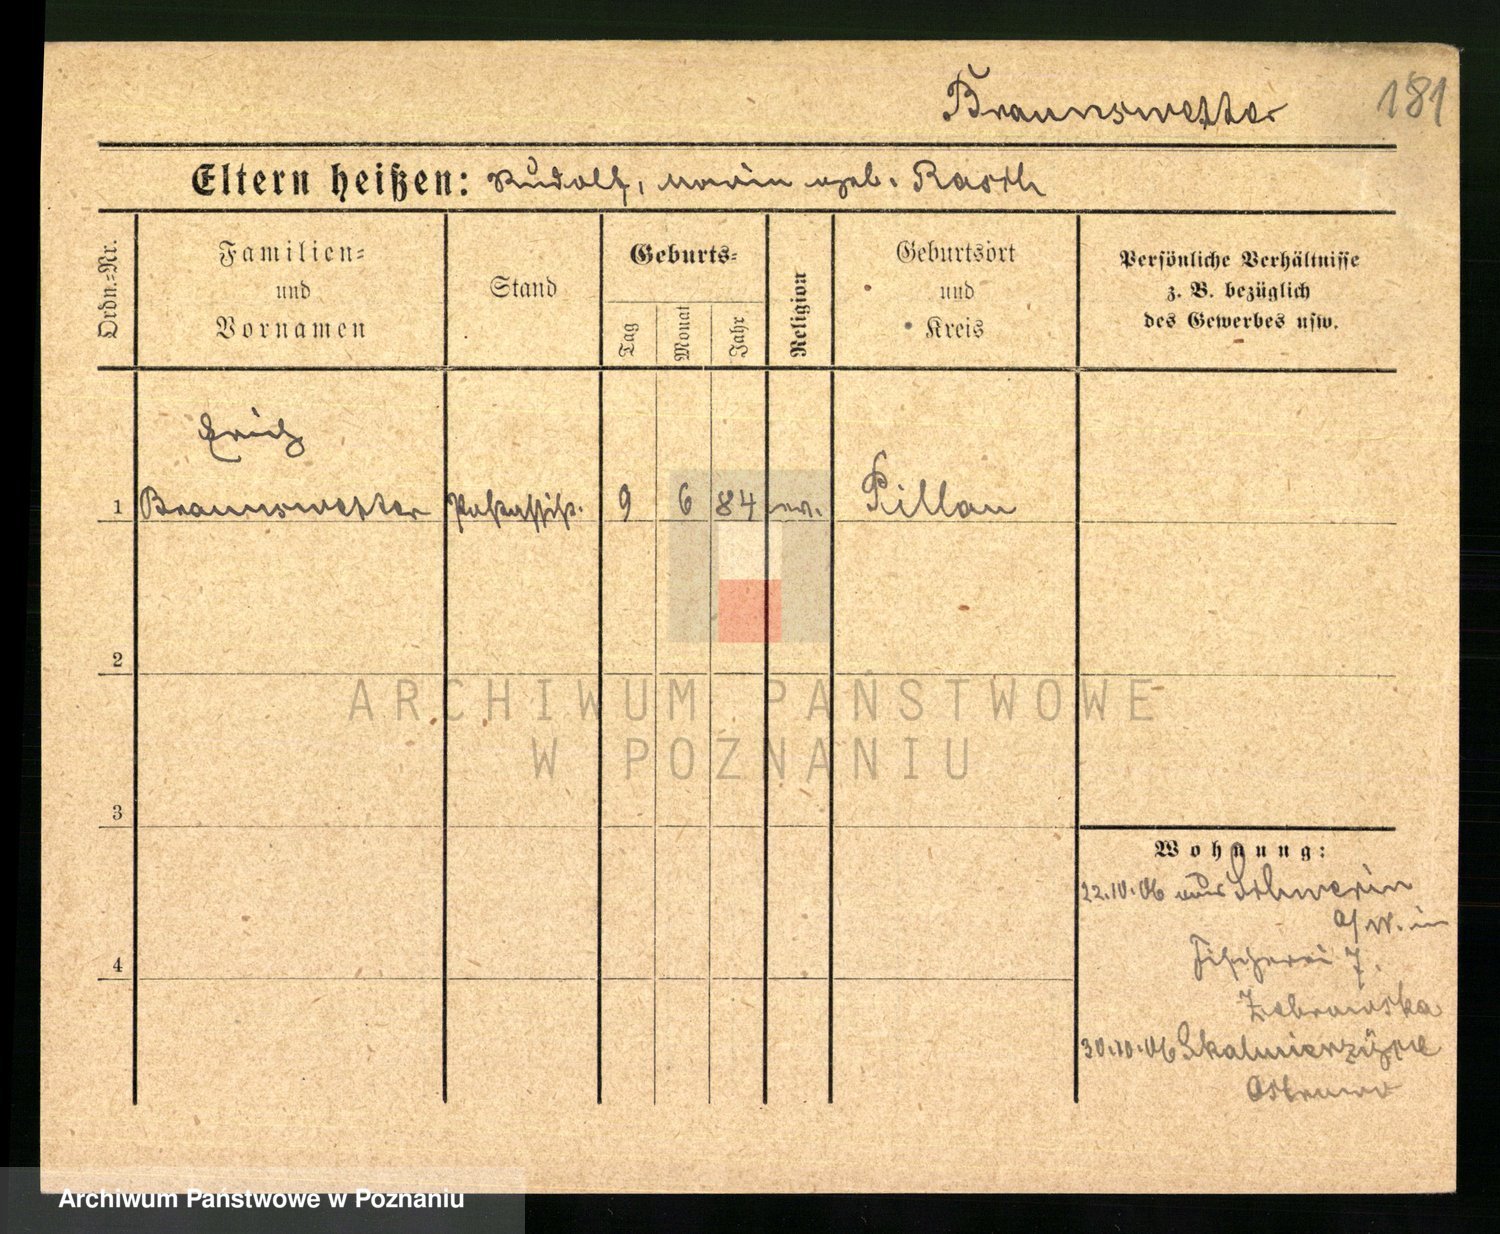 Braunswetter 181
Eltern heißen: Rudolf, Marie geb. Rasch
Ordn.-Nr.
Familien-
und
Vornamen
Stand
Geburts-
Tag
Monat
Jahr
Religion
Geburtsort
und
Kreis
Persönliche Verhältnisse
z. B. bezüglich
des Gewerbes usw.
Erich
1 Braunswetter 9 6 84 ev. Pillau
2
3
4
Wohnung:
22.10.06 aus Schwerin
a/W. in
Fischerei 7.
Zebrowska
30.10.06 Skalmierzüce
Ostrowo
ARCHIWUM PAŃSTWOWE
W POZNANIU
Archiwum Państwowe w Poznaniu